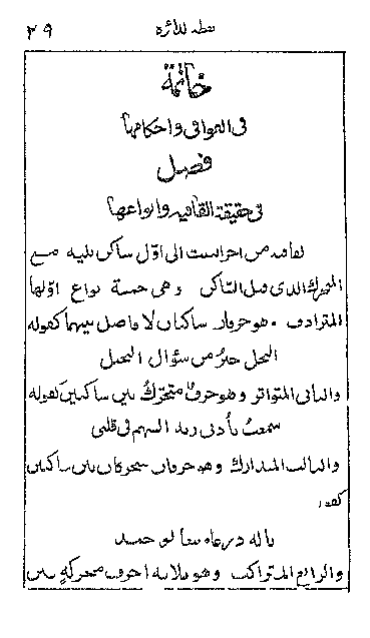 نقطة الدائرة ٣٩
خاتمة
في القوافي واحكامها
فصل
في حقيقة القافية وانواعها
القافية من اخر البيت الى اوّل ساكن يليه مع
المتحرك الذي قبل الساكن وهي خمسة انواع اوّلها
المترادف وهو حرفان ساكنان لا فاصل بينهما كقوله
البخل خيرٌ من سؤال البخيل
والثاني المتواتر وهو حرفٌ متحرّكٌ بين ساكنين كقوله
سمعتُ بأذني رنة السهم في قلبي
والثالث المتدارك وهو حرفان متحركان بين ساكنين
كقوله
يا له درعاه
والرابع المتراكب وهو ثلاثة احرف متحركةٍ بين